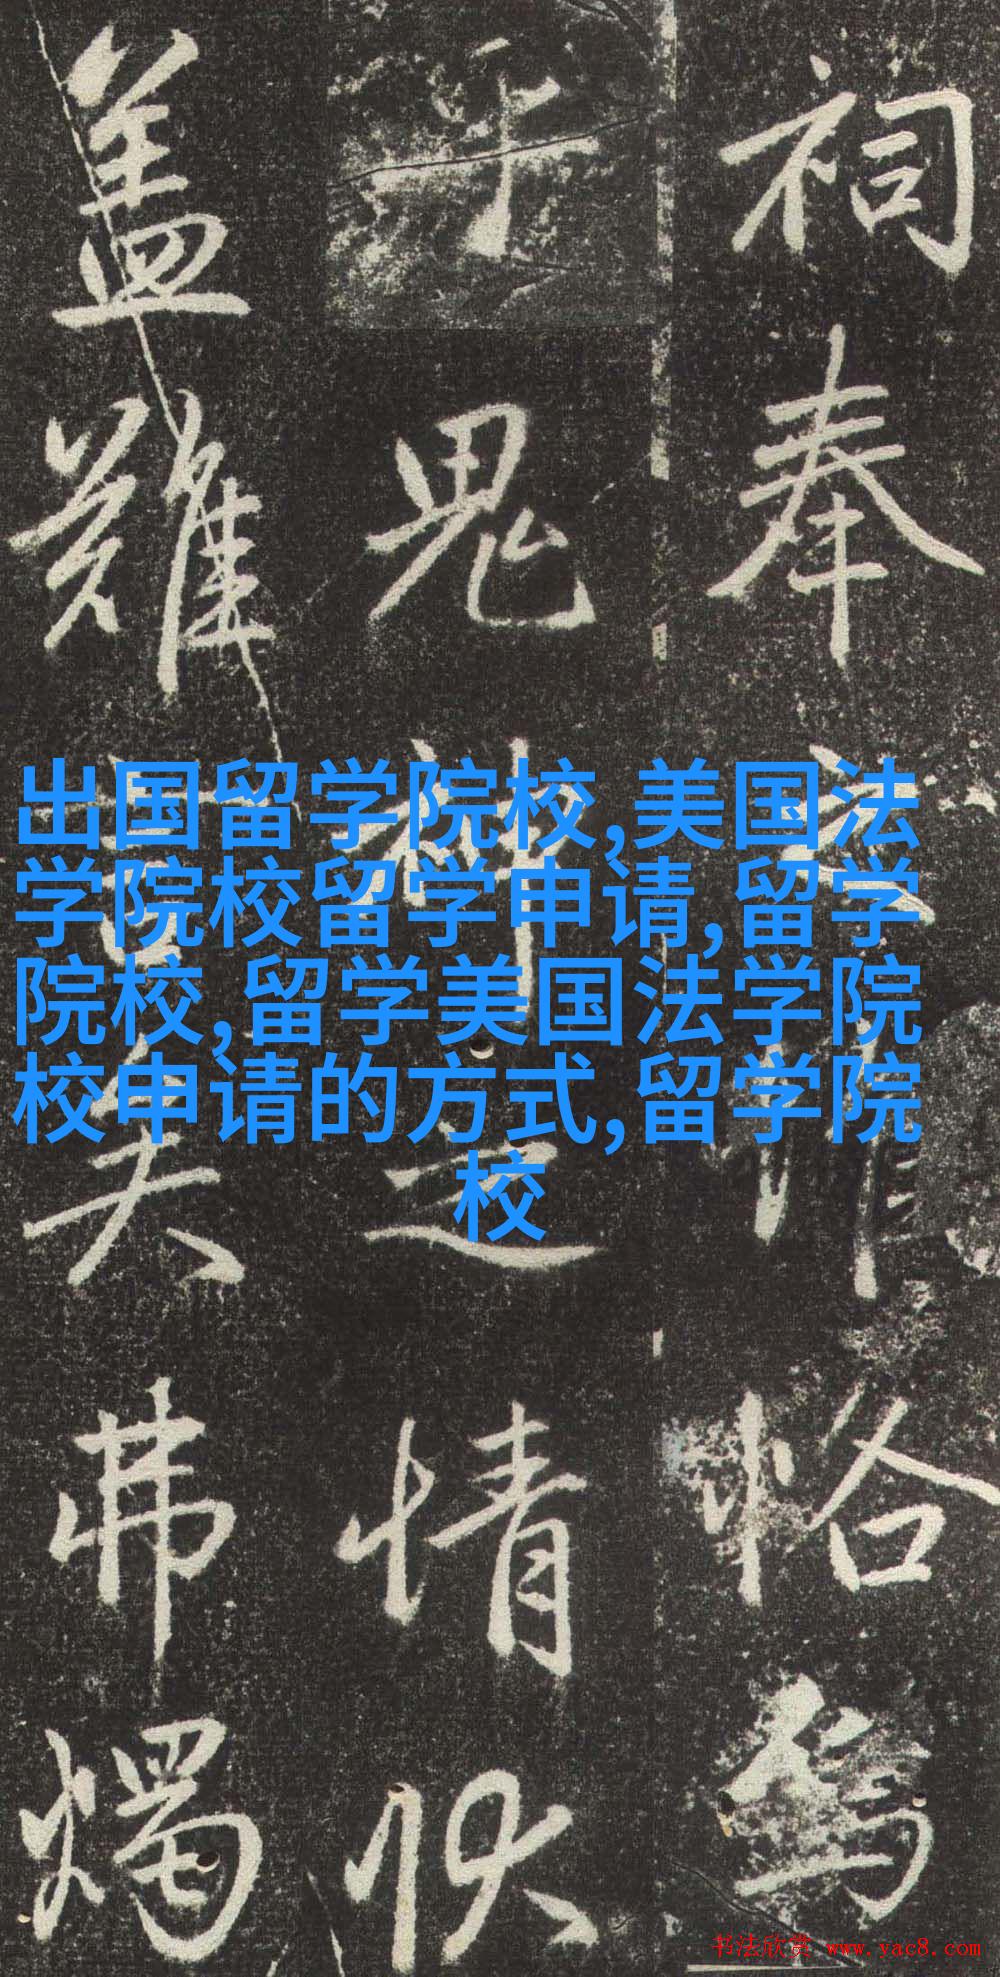 祠奉惟恪焉
于鬼神之情狀
盖難言矣弗燭
出国留学院校,美国法
学院校留学申请,留学
院校,留学美国法学院
校申请的方式,留学院
校
书法欣赏 www.yac8.com